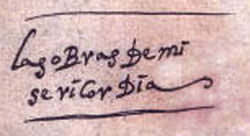 lago Bras De mi
sericor Dia